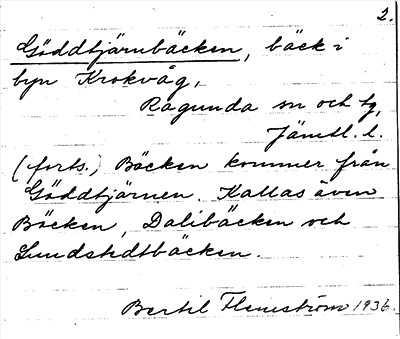 2.
Göddtjärnbäcken, bäck i
byn Krokvåg,
Ragunda sn och tg,
Jämtl. l.
(forts.) Bäcken kommer från
Göddtjärnen. Kallas även
Bäcken, Dalibäcken och
Lundstedtbäcken.
Bertil Flemström 1936.